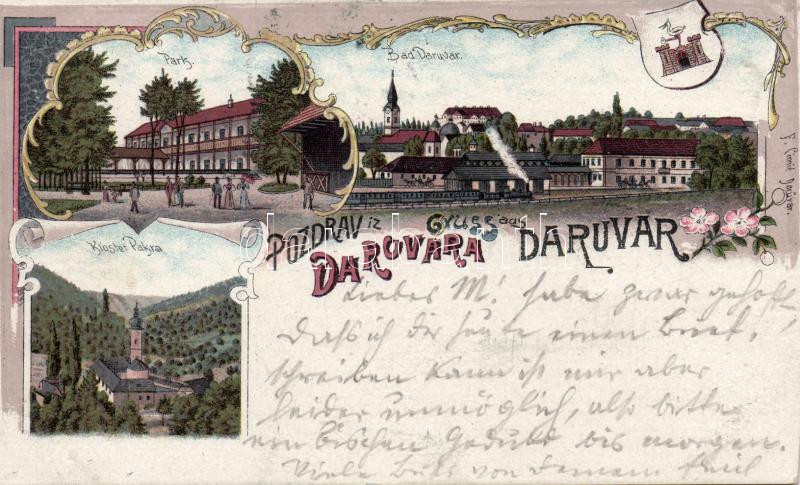 Park.
Bad Daruvar.
Kloster Pakra
POZDRAV iz DARUVARA
Gruss aus DARUVAR
Liebes M! habe zwar gehofft
daß ich dir heute einen Brief
schreiben kann ist mir aber
leider unmöglich, also bitte
ein bischen Geduld bis morgen.
Viele von deinem
darabanth.com